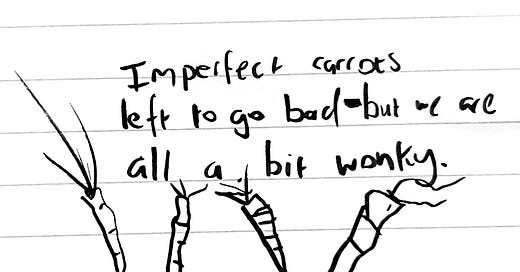 Imperfect carrots
left to go bad-but we are
all a bit wonky.